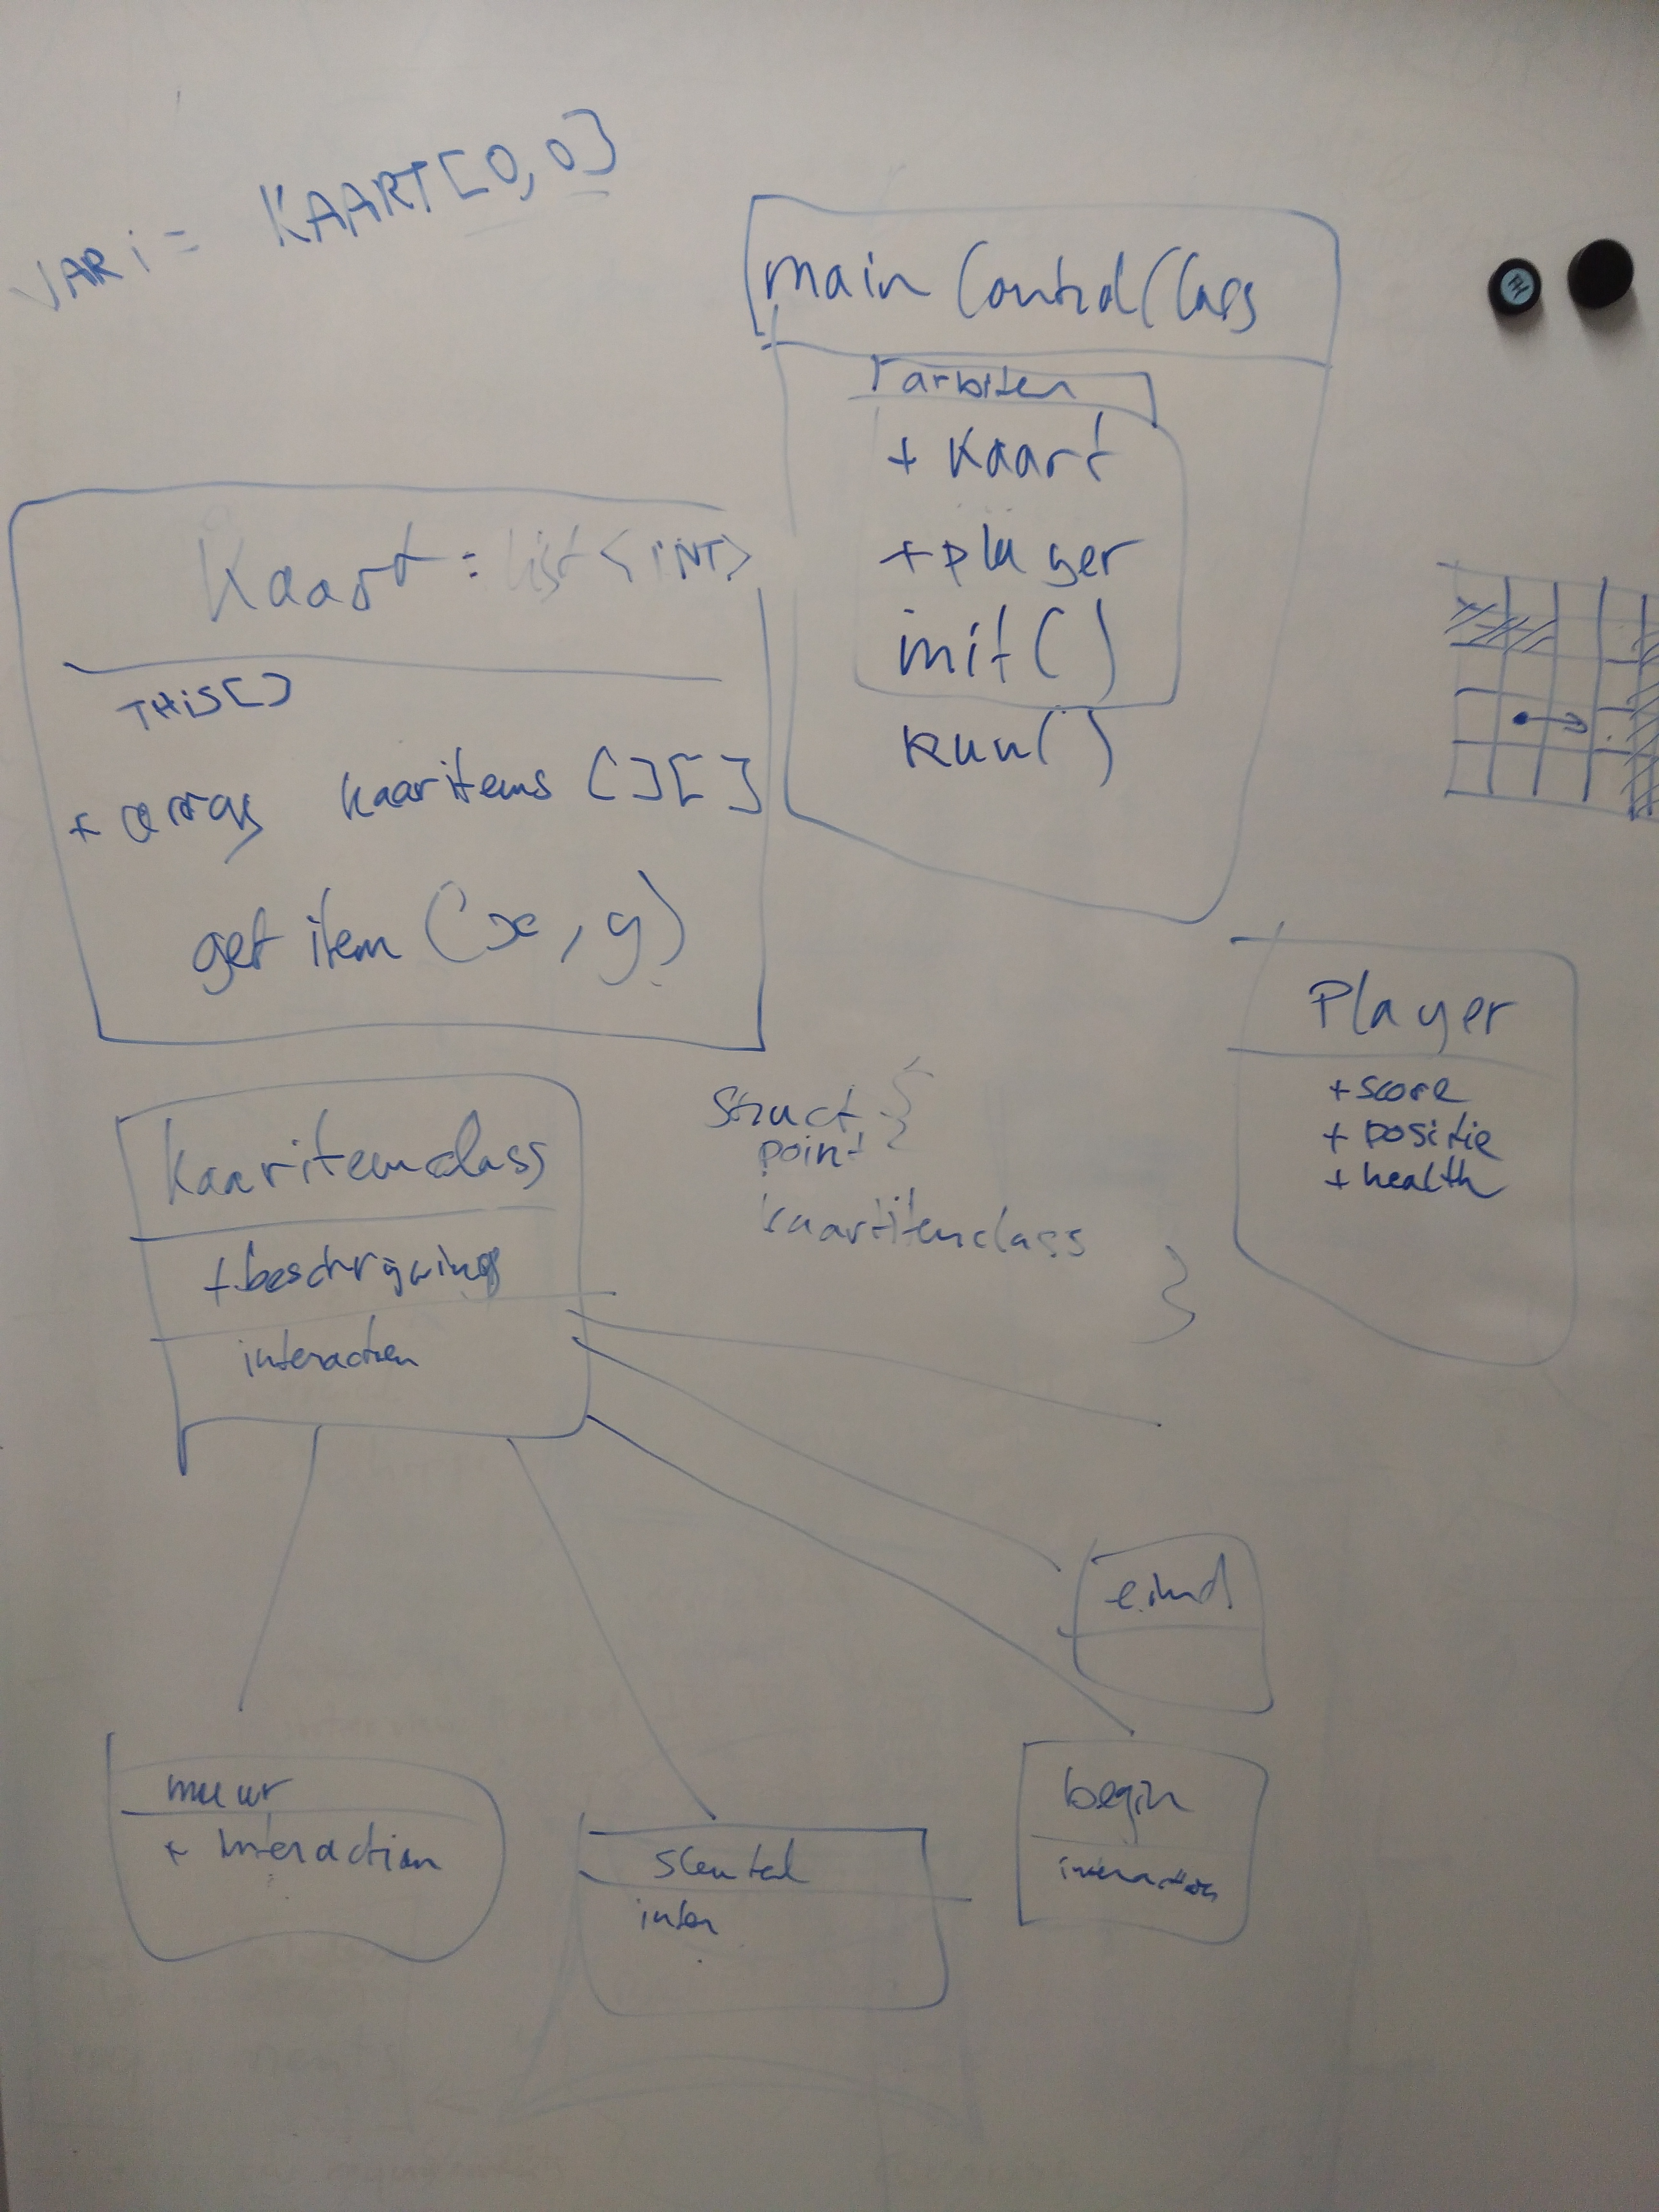 VAR i = KAART[0,0]
main Control Class
+ Kaart
+ player
init()
Run()
Kaart : list <INT>
THIS[]
+ array kaaritems [][]
get item (x, y)
Player
+ score
+ positie
+ health
struct {
point
kaartitemclass
}
kaaritemclass
+ beschrijving
interaction
eind
muur
+ Interaction
sleutel
inter
begin
interaction